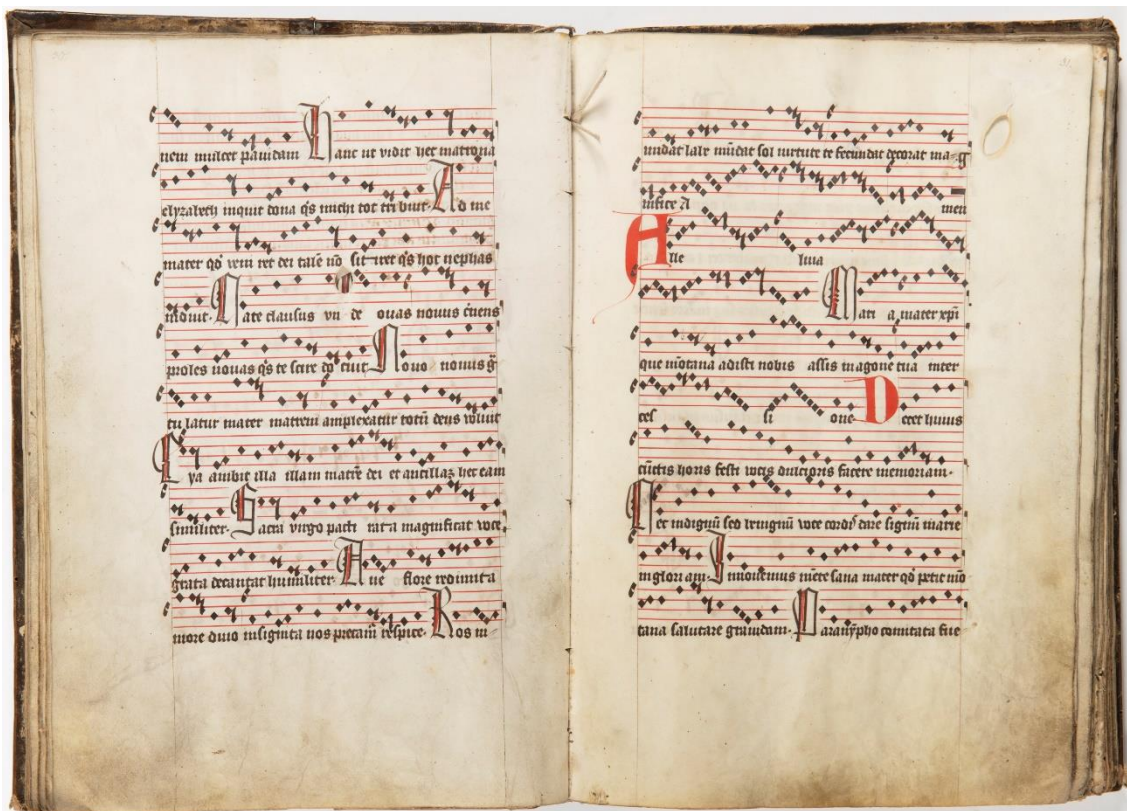 nem mulcet pavidam Hanc ut vidit hec matrona
elyzabeth inquit dona qs michi tot tribuit· Ad me
mater qd veni ret dei talē nō sit‑ret qs hoc nephas
Nate clausus vn de ovas novus
proles novas qs te scire Novo novus
tu latur mater matrem amplexatur totū deus voluit
Eya ambit illa illam matrē dei et ancillaꝫ hec eam
similiter· Sacra virgo pacti rata magnificat voce
grata decantat humiliter· Ave flore redimita
more divio insignita nos precam̄ respice· Ros in
mūdat sol virtute te fecundat decorat mag
nifice A men
Alle luia
Mari a mater xpi
que mōtana adisti nobis assis in agone tua inter
ces si one Decet huius
cūctis horis festi vocis dulcioris facere memoriam·
Nec indignū sed benignū voce cordis dare signū marie
in gloriam· Iubilemus mēte sana mater qd petit mō
tana salutare gravidam· Paranympho comitata sue